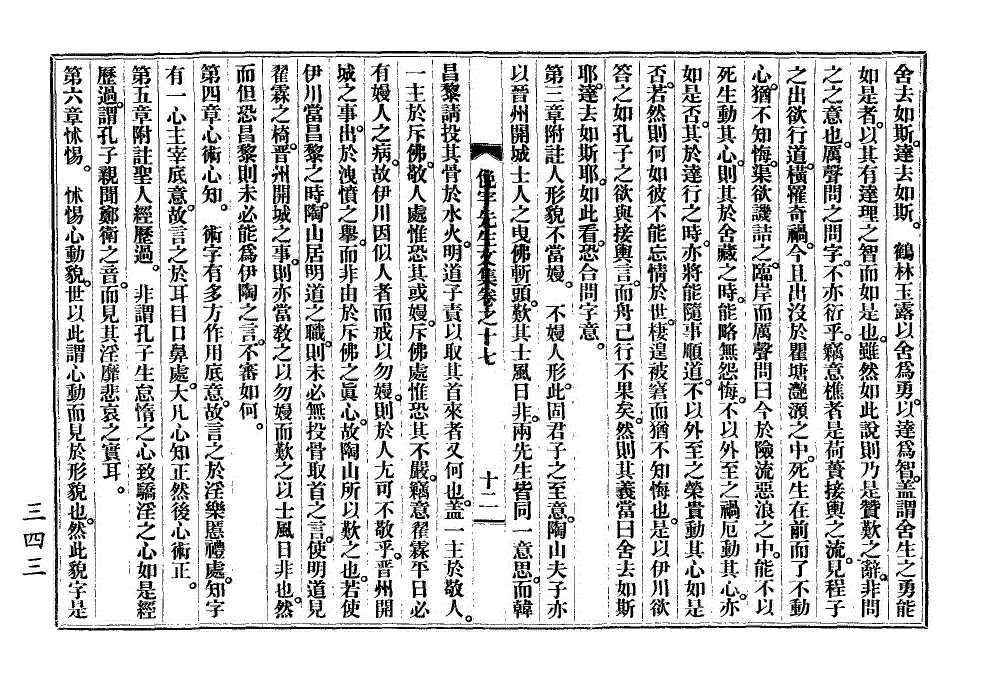 舍去如斯。達去如斯。　鶴林玉露以舍爲勇。以達爲智。盖謂舍生之勇能
如是者。以其有達理之智而如是也。雖然如此說則乃是贊歎之辭。非問
之之意也。厲聲問之問字。不亦衍乎。竊意樵者是荷蕢接輿之流。見程子
之出欲行道。橫罹奇禍。今且出沒於瞿塘灔澦之中。死生在前而了不動
心。猶不知悔。渠欲譏詰之。臨岸而厲聲問曰今於險流惡浪之中。能不以
死生動其心。則其於舍藏之時。能略無怨悔。不以外至之禍厄動其心。亦
如是否。其於達行之時。亦將能隨事順道。不以外至之榮貴動其心如是
否。若然則何如彼不能忘情於世。棲遑被窘而猶不知悔也。是以伊川欲
答之如孔子之欲與接輿言。而舟已行不果矣。然則其義當曰舍去如斯
耶。達去如斯耶。如此看。恐合問字意。
第三章附註人形貌不當嫚。　不嫚人形。此固君子之至意。陶山夫子亦
以晉州開城士人之曳佛斬頭。歎其士風日非。兩先生皆同一意思。而韓
先生文集卷之十七
十二
昌黎請投其骨於水火。明道子責以取其首來者又何也。盖一主於敬人。
一主於斥佛。敬人處惟恐其或嫚。斥佛處惟恐其不嚴。竊意翟霖平日必
有嫚人之病。故伊川因似人者而戒以勿嫚。則於人尤可不敬乎。晉州開
城之事。出於洩憤之擧。而非由於斥佛之眞心。故陶山所以歎之也。若使
伊川當昌黎之時。陶山居明道之職。則未必無投骨取首之言。使明道見
翟霖之椅。晉州開城之事。則亦當敎之以勿嫚而歎之以士風日非也。然
而但恐昌黎則未必能爲伊陶之言。不審如何。
第四章心術心知。　術字有多方作用底意。故言之於淫樂慝禮處。知字
有一心主宰底意。故言之於耳目口鼻處。大凡心知正然後心術正。
第五章附註聖人經歷過。　非謂孔子生怠惰之心致驕淫之心如是經
歷過。謂孔子親聞鄭衛之音。而見其淫靡悲哀之實耳。
第六章怵惕。　怵惕心動貌。世以此謂心動而見於形貌也。然此貌字是
三四三